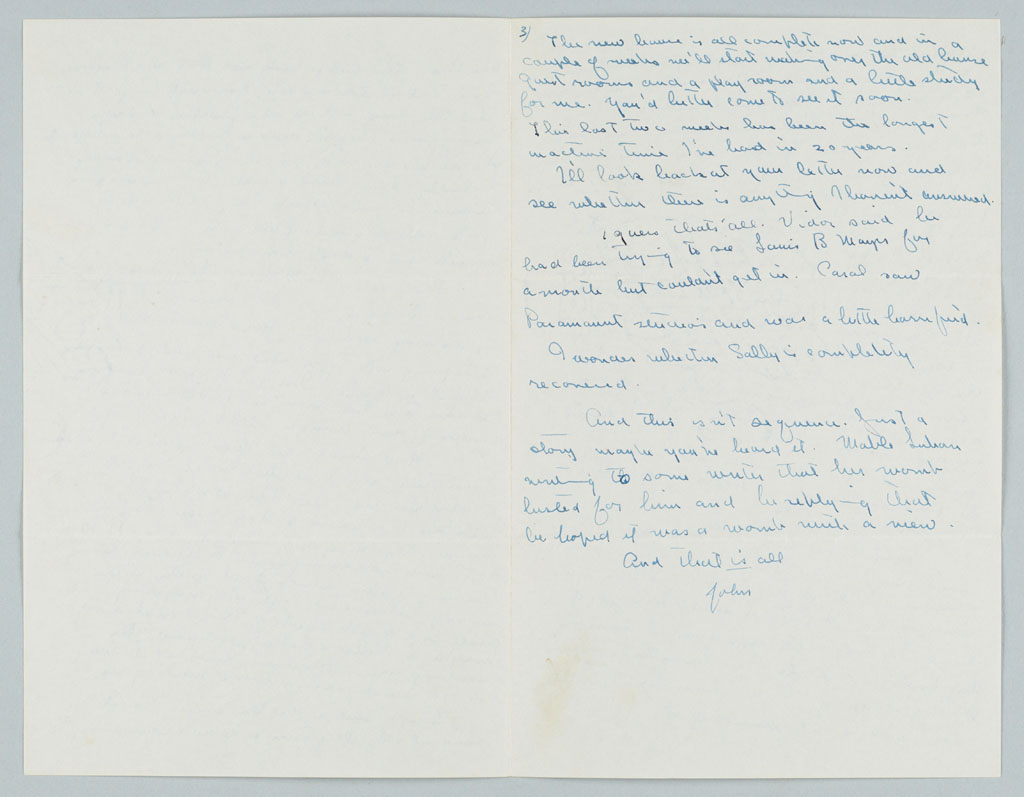 3)
The new house is all complete now and in a
couple of weeks we'll start making over the old house
guest rooms and a play room and a little study
for me. You'd better come to see it soon.
This last two weeks has been the longest
inactive time I've had in 20 years.
I'll look back at your letter now and
see whether there is anything I haven't answered.
I guess thats all. Vidor said he
had been trying to see Louis B Mayer for
a month but couldn't get in. Carol saw
Paramount studios and was a little horrified.
I wonder whether Sally is completely
recovered.
And this isn't sequence. Just a
story maybe you've heard it. Mable Luhan
writing to some writer that her womb
lusted for him and he replying that
he hoped it was a womb with a view.
And that is all
John